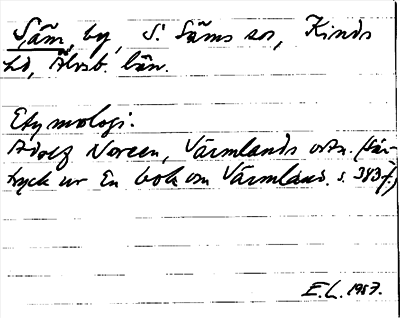 Säm, by, S. Säms sn, Kinds
hd, Älvsb. län.
Etymologi.
Adolf Noreen, Värmlands ortn. (Sär-
tryck ur En bok om Värmland. s. 343 f.)
E.L. 1957.